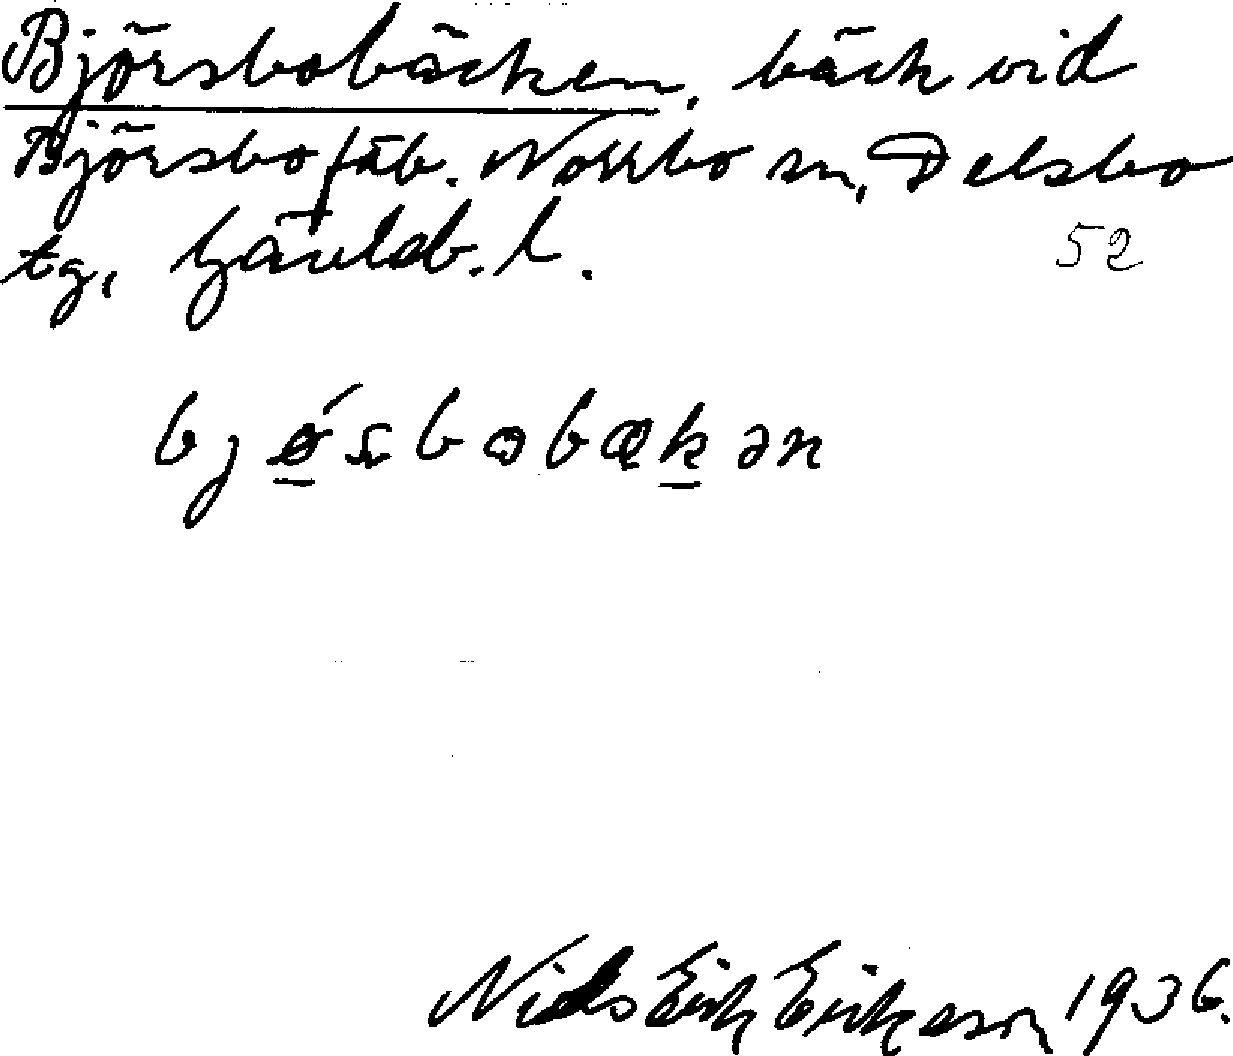 Björsbobäcken, bäck vid
Björsbo fäb. Norrbo sn, Delsbo
tg, Gävleb. l. 52
bjǿsbobækən
Niels Erik Erikson 1936.